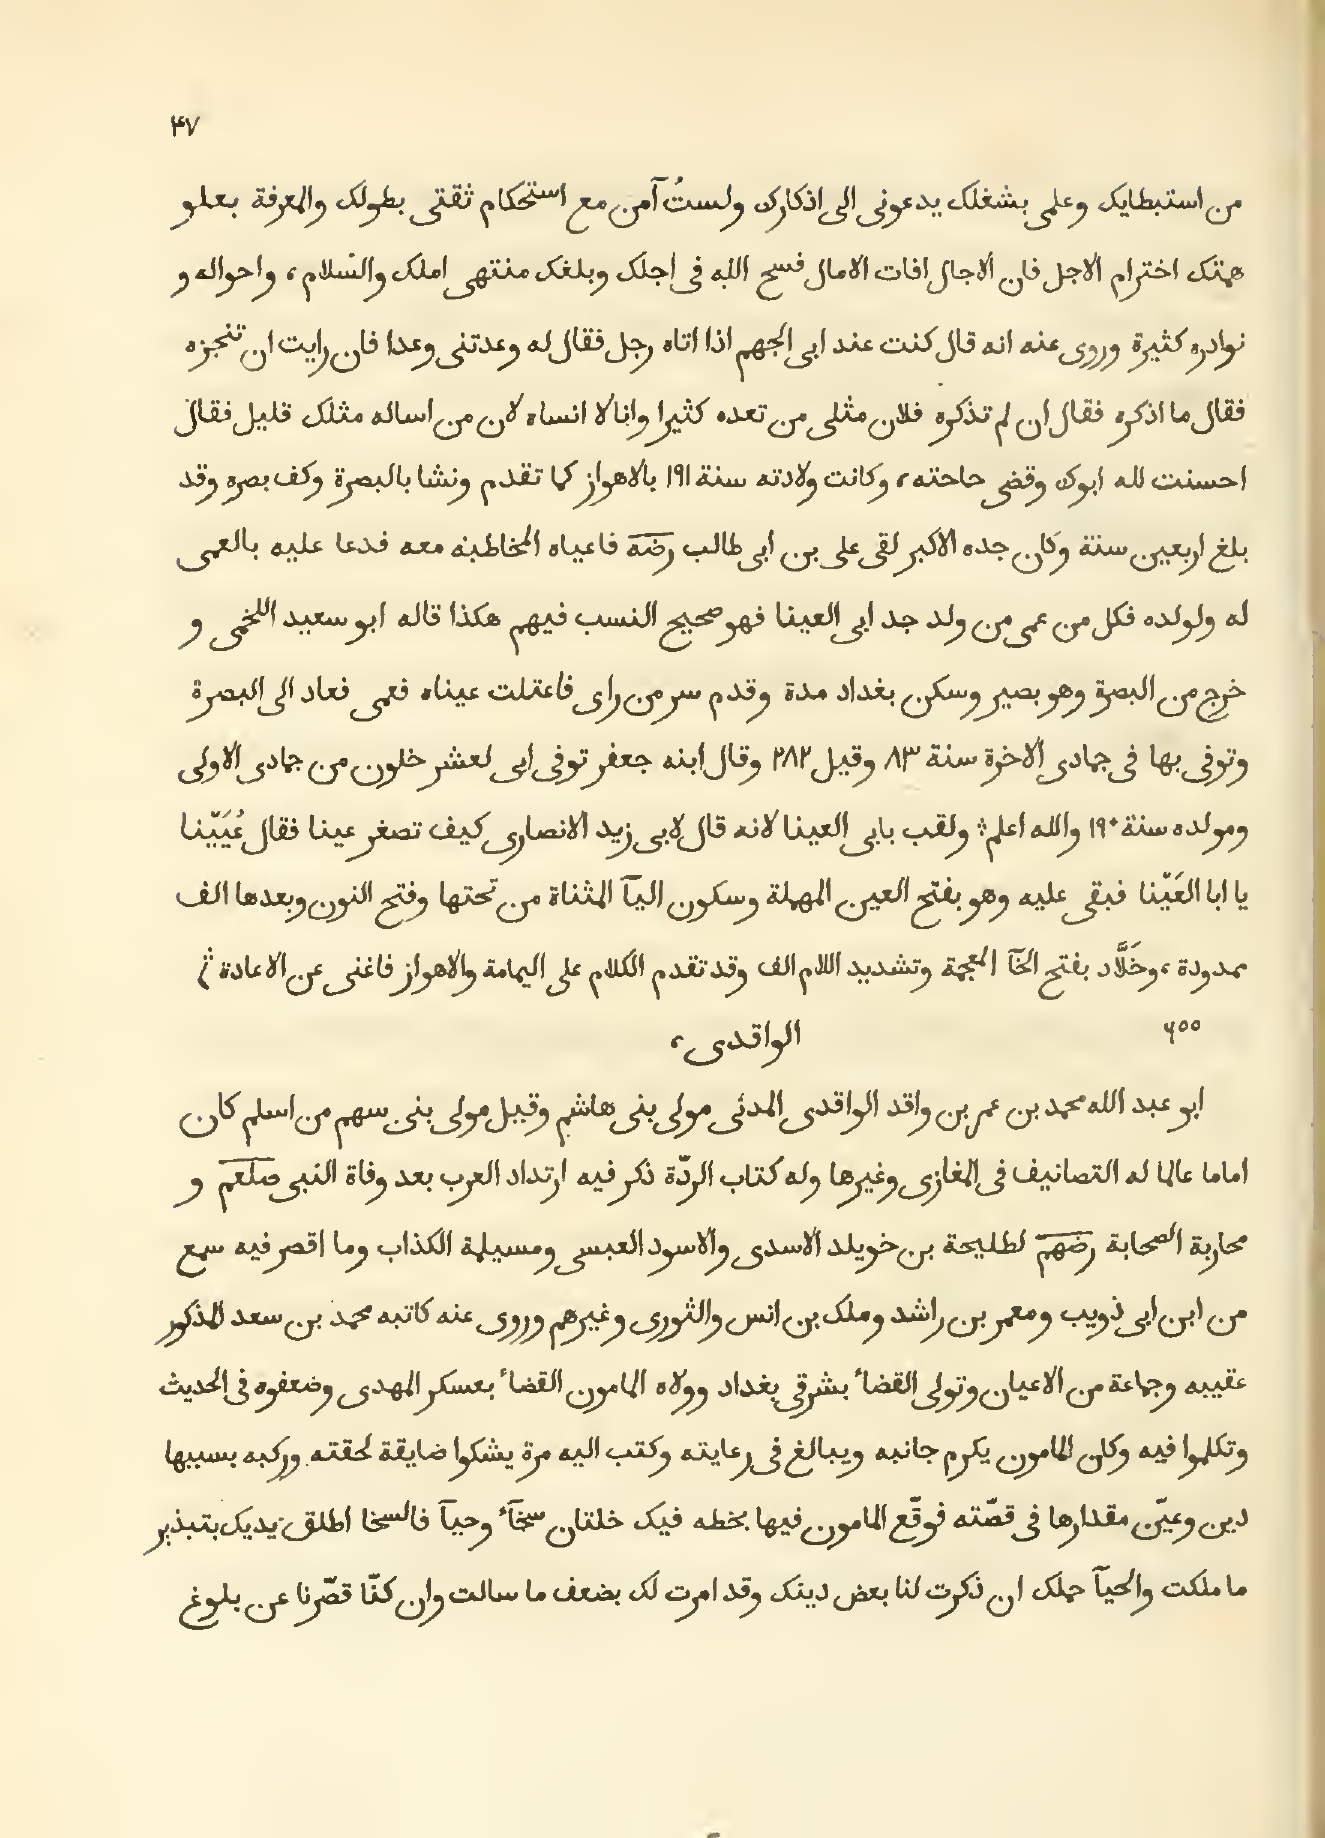 ۴۷
من استبطايك وعلمى بشغلك يدعونى الى اذكارك ولستُ آمن مع استحكام ثقتى بطولك والمعرفة بعلو
همتك اخترام الاجل فان الاجال افات الامال فسح الله فى اجلك وبلغك منتهى املك والسّلام، واحواله و
نوادره كثيرة وروى عنه انه قال كنت عند ابى الجهم اذا اتاه رجل فقال له وعدتنى وعدا فان رايت ان تنجزه
فقال ما اذكره فقال ان لم تذكره فلان مثلى من تعده كثيرا وانا لا انساه لان من اساله مثلك قليل فقال
احسنت لله ابوك وقضى حاحته، وكانت ولادته سنة ١٩١ بالاهواز كما تقدم ونشا بالبصرة وكف بصره وقد
بلغ اربعين سنة وكان جده الاكبر لقى على بن ابى طالب رضه فاعياه المخاطبنه معه فدعا عليه بالعمى
له ولولده فكل من عمى من ولد جد ابى العينا فهو صحيح النسب فيهم هكذا قاله ابو سعيد اللخمى و
خرج من البصرة وهو بصير وسكن بغداد مدة وقدم سر من راى فاعتلت عيناه فعمى فعاد الى البصرة
وتوفى بها فى جمادى الاخرة سنة ٨٣ وقيل ٢٨٢ وقال ابنه جعفر توفى ابى لعشر خلون من جمادى الاولى
ومولده سنة ١٩٠ والله اعلم؛ ولقب بابى العينا لانه قال لابى زيد الانصارى كيف تصغر عينا فقال عُيَيّنا
يا ابا العَيّنا فبقى عليه وهو بفتح العين المهملة وسكون اليآ المثناة من تحتها وفتح النون وبعدها الف
ممدودة، وخَلَّاد بفتح الخآ المعجمة وتشديد اللام الف وقد تقدم الكلام على اليمامة والاهواز فاغنى عن الاعادة؛
۶۵۵
الواقدى،
ابو عبد الله محمد بن عمر بن واقد الواقدى المدنى مولى بنى هاشم وقيل مولى بنى سهم من اسلم كان
اماما عالما له التصانيف فى المغازى وغيرها وله كتاب الردّة ذكر فيه ارتداد العرب بعد وفاة النبى صلعم و
محاربة الصحابة رضهم لطليحة بن خويلد الاسدى والاسود العبسى ومسيلمة الكذاب وما اقصر فيه سمع
من ابن ابى ذويب ومعمر بن راشد وملك بن انس والثورى وغيرهم وروى عنه كاتبه محمد بن سعد المذكور
عقيبه وجماعة من الاعيان وتولى القضاء بشرقى بغداد وولاه المامون القضاء بعسكر المهدى وضعفوه فى الحديث
وتكلموا فيه وكان المامون يكرم جانبه ويبالغ فى رعايته وكتب اليه مرة يشكوا ضايقة لحقته وركبه بسببها
دين وعيّن مقدارها فى قصّته فوقّع المامون فيها بخطه فيك خلتان سخآء وحيآ فالسخا اطلق يديك بتبذير
ما ملكت والحيآ حملك ان ذكرت لنا بعض دينك وقد امرت لك بضعف ما سالت وان كنّا قصّرنا عن بلوغ